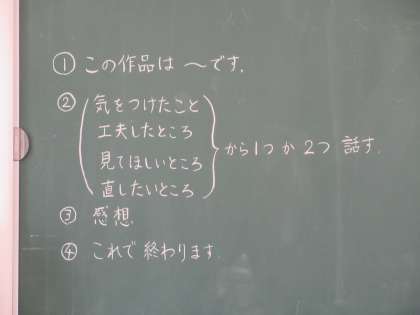 ① この作品は 〜です。
② 気をつけたこと
工夫したところ
見てほしいところ
直したいところ
から1つか2つ 話す。
③ 感想
④ これで 終わります。